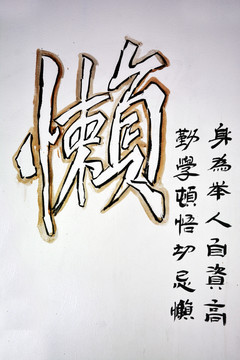 懶
身為举人自資高
勤學頓悟切忌懶